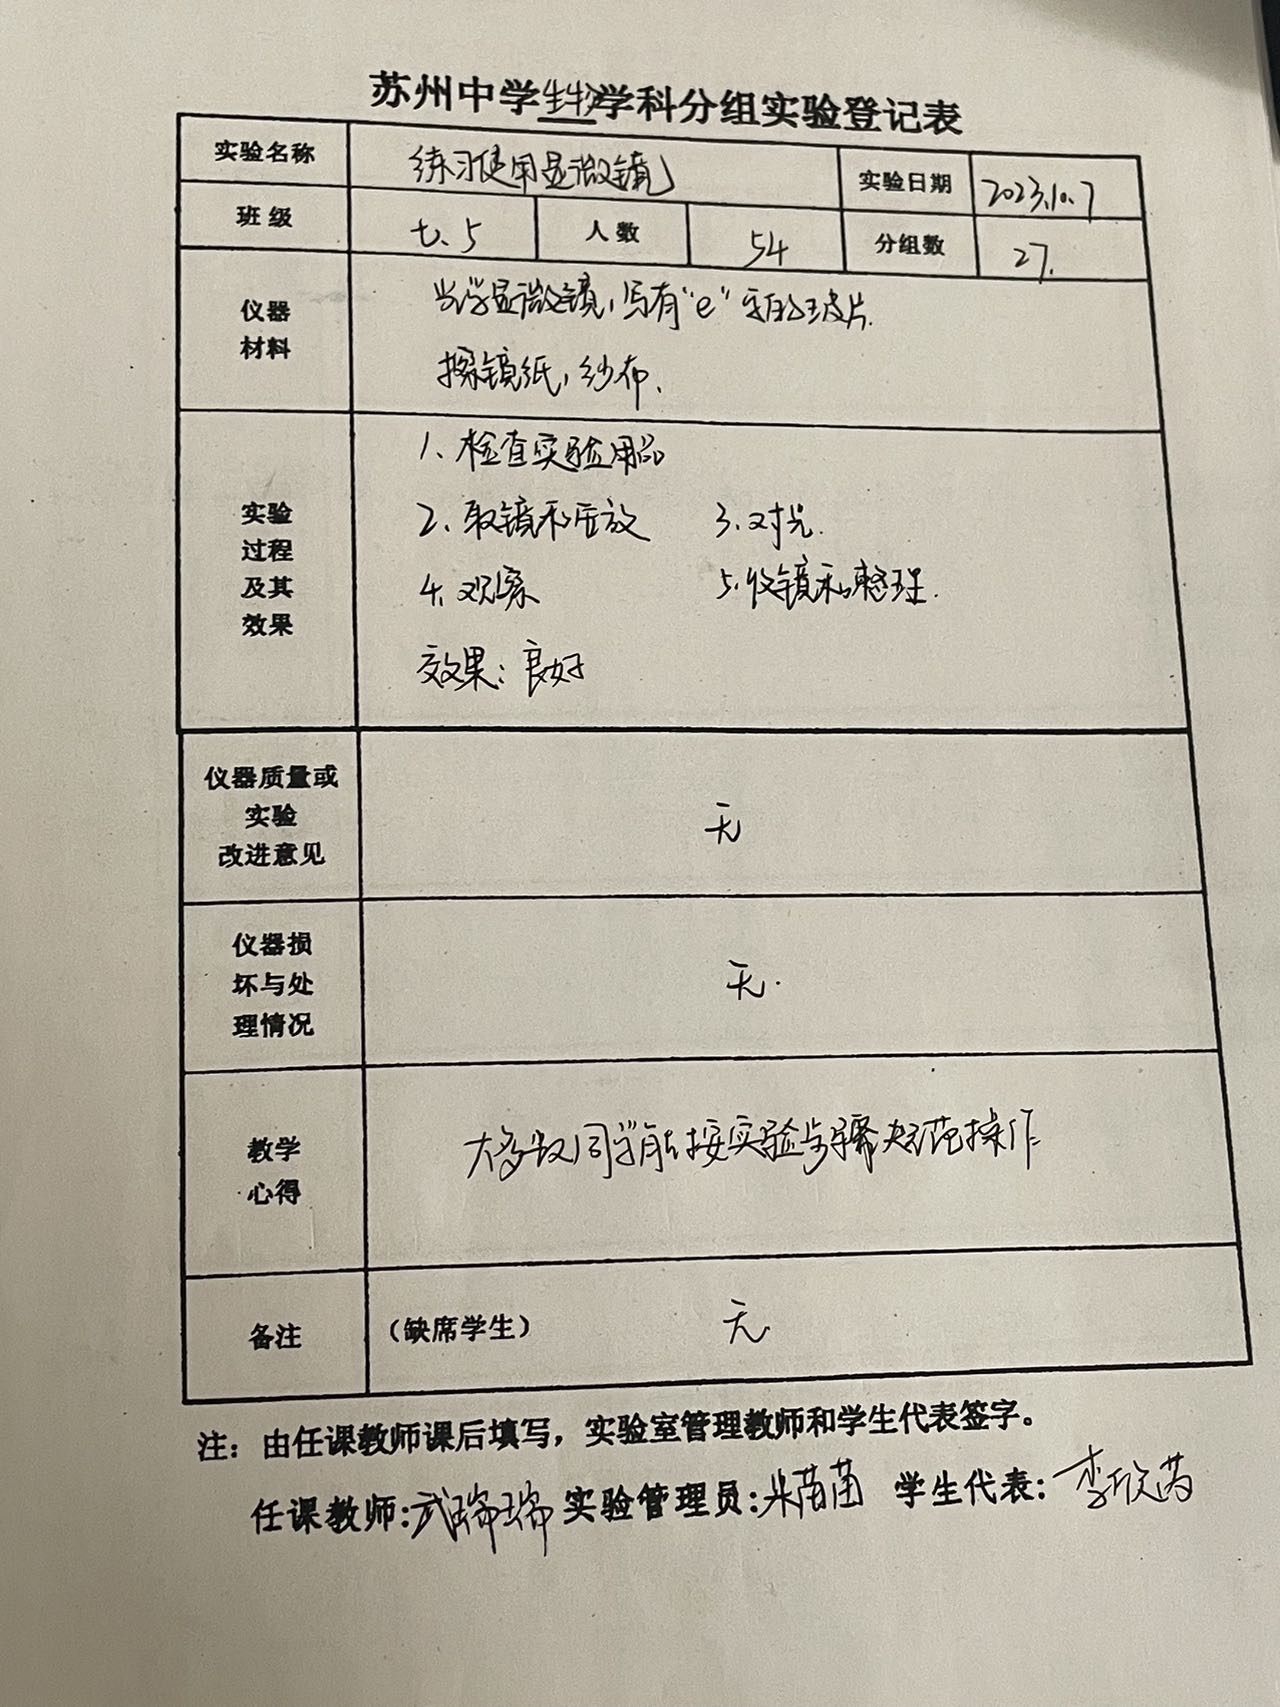 苏州中学生物学科分组实验登记表
实验名称 练习使用显微镜 实验日期 2023.10.7
班级 七.5 人数 54 分组数 27.
仪器
材料
光学显微镜,写有"e"字的玻片.
擦镜纸,纱布.
实验
过程
及其
效果
1、检查实验用品
2、取镜和安放 3.对光.
4.观察 5.收镜和整理.
效果:良好
仪器质量或
实验
改进意见
无
仪器损
坏与处
理情况
无.
教学
心得
大多数同学能按实验步骤规范操作
备注 (缺席学生) 无
注:由任课教师课后填写,实验室管理教师和学生代表签字。
任课教师:武瑞瑞 实验管理员:朱苗苗 学生代表:李欣